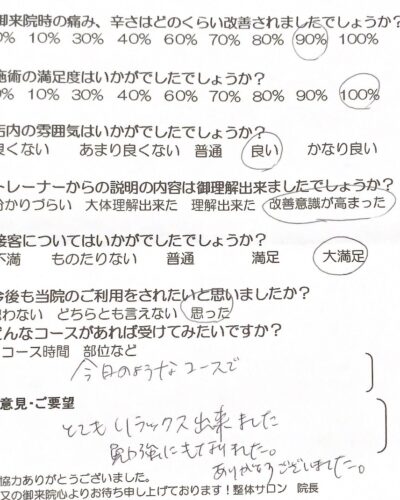 御来院時の痛み、辛さはどのくらい改善されましたでしょうか?
0% 10% 30% 40% 60% 70% 80% 90% 100%
施術の満足度はいかがでしたでしょうか?
0% 10% 30% 40% 60% 70% 80% 90% 100%
店内の雰囲気はいかがでしたでしょうか?
良くない あまり良くない 普通 良い かなり良い
トレーナーからの説明の内容は御理解出来ましたでしょうか?
分かりづらい 大体理解出来た 理解出来た 改善意識が高まった
接客についてはいかがでしたでしょうか?
不満 ものたりない 普通 満足 大満足
今後も当院のご利用をされたいと思いましたか?
思わない どちらとも言えない 思った
どんなコースがあれば受けてみたいですか?
コース時間 部位など
今日のようなコースで
意見・ご要望
とてもリラックス出来ました
勉強にもなりました。
ありがとうございました。
協力ありがとうございました。
又の御来院心よりお待ち申し上げております!整体サロン 院長